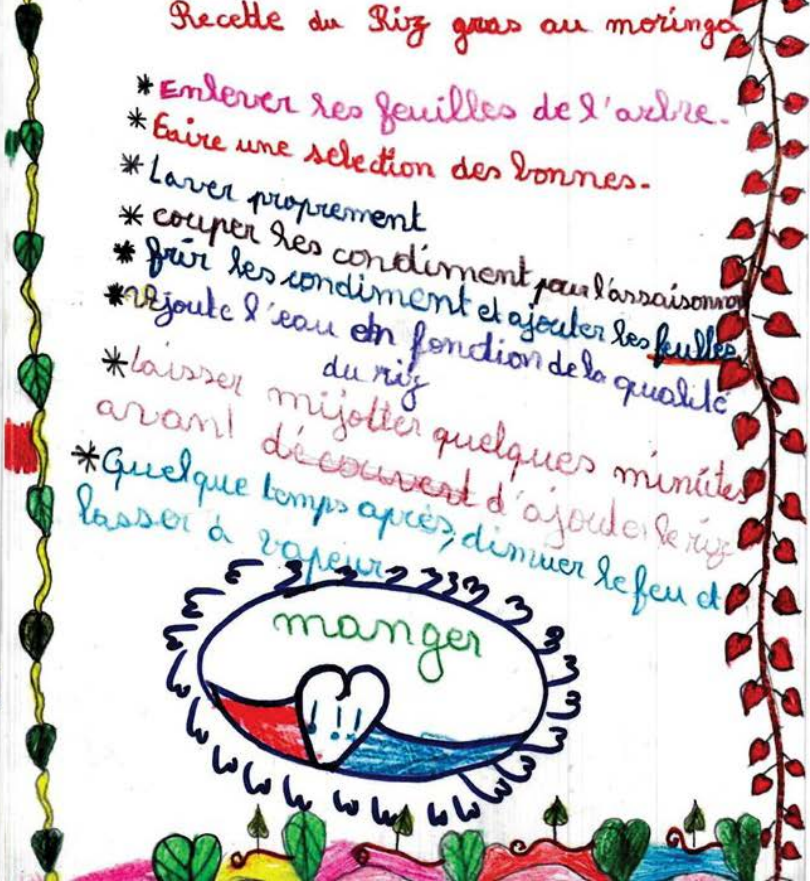 Recette du Riz gras au moringa
* Enlever les feuilles de l'arbre.
* Faire une selection des bonnes.
* Laver proprement
* couper les condiment pour l'assaisonne
* frir les condiment et ajouter les feulles
* Ajoute l'eau en fonction de la qualité
du riz
* laisser mijotter quelques minutes
avant découvert d'ajouter le riz
* Quelque temps après, dimuer le feu et
lasser à vapeur
manger
!!!